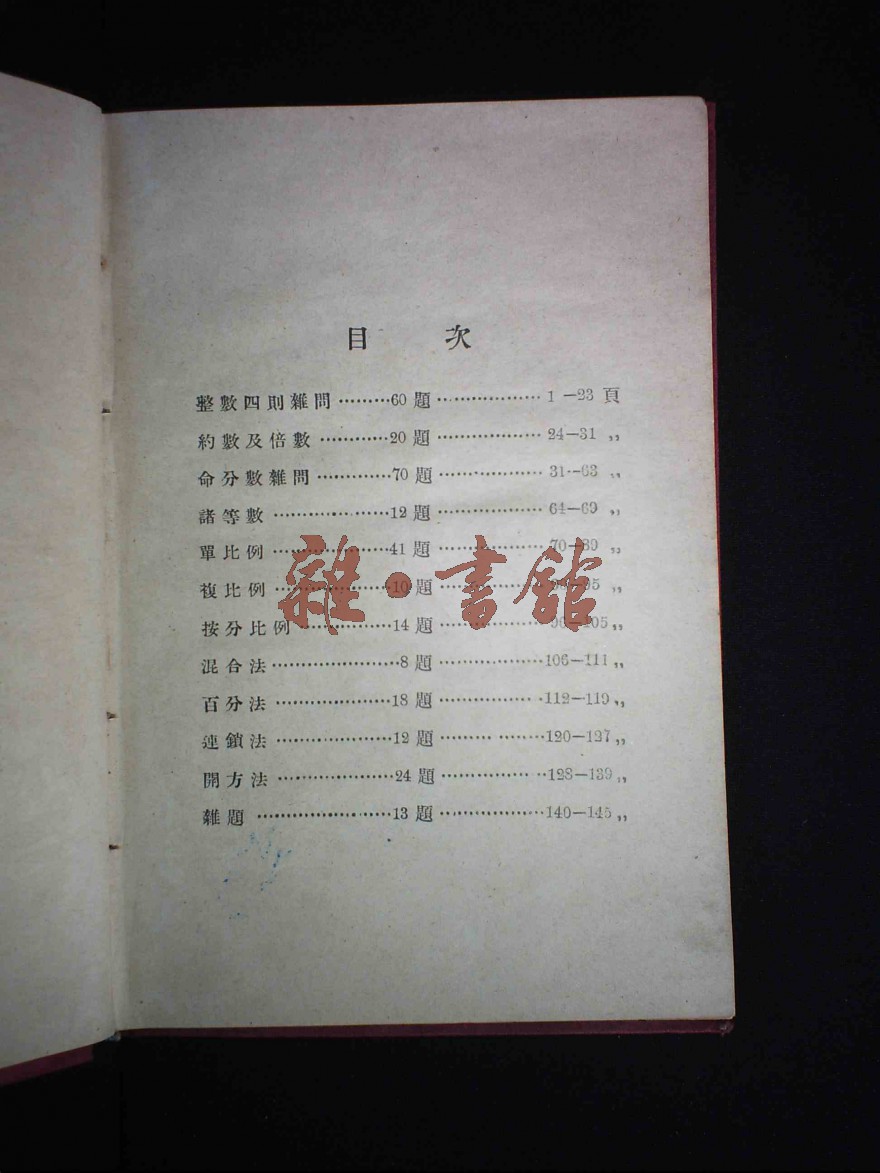 目 次
整數四則雜問………60題………………1-23頁
約數及倍數…………20題………………24-31〃
命分數雜問…………70題………………31-63〃
諸等數………………12題………………64-69〃
單比例………………41題………………70-89〃
複比例………………10題………………-95〃
按分比例……………14題………………96-105〃
混合法………………8題………………106-111〃
百分法………………18題………………112-119〃
連鎖法………………12題………………120-127〃
開方法………………24題………………128-139〃
雜題…………………13題………………140-145〃
雜·書館